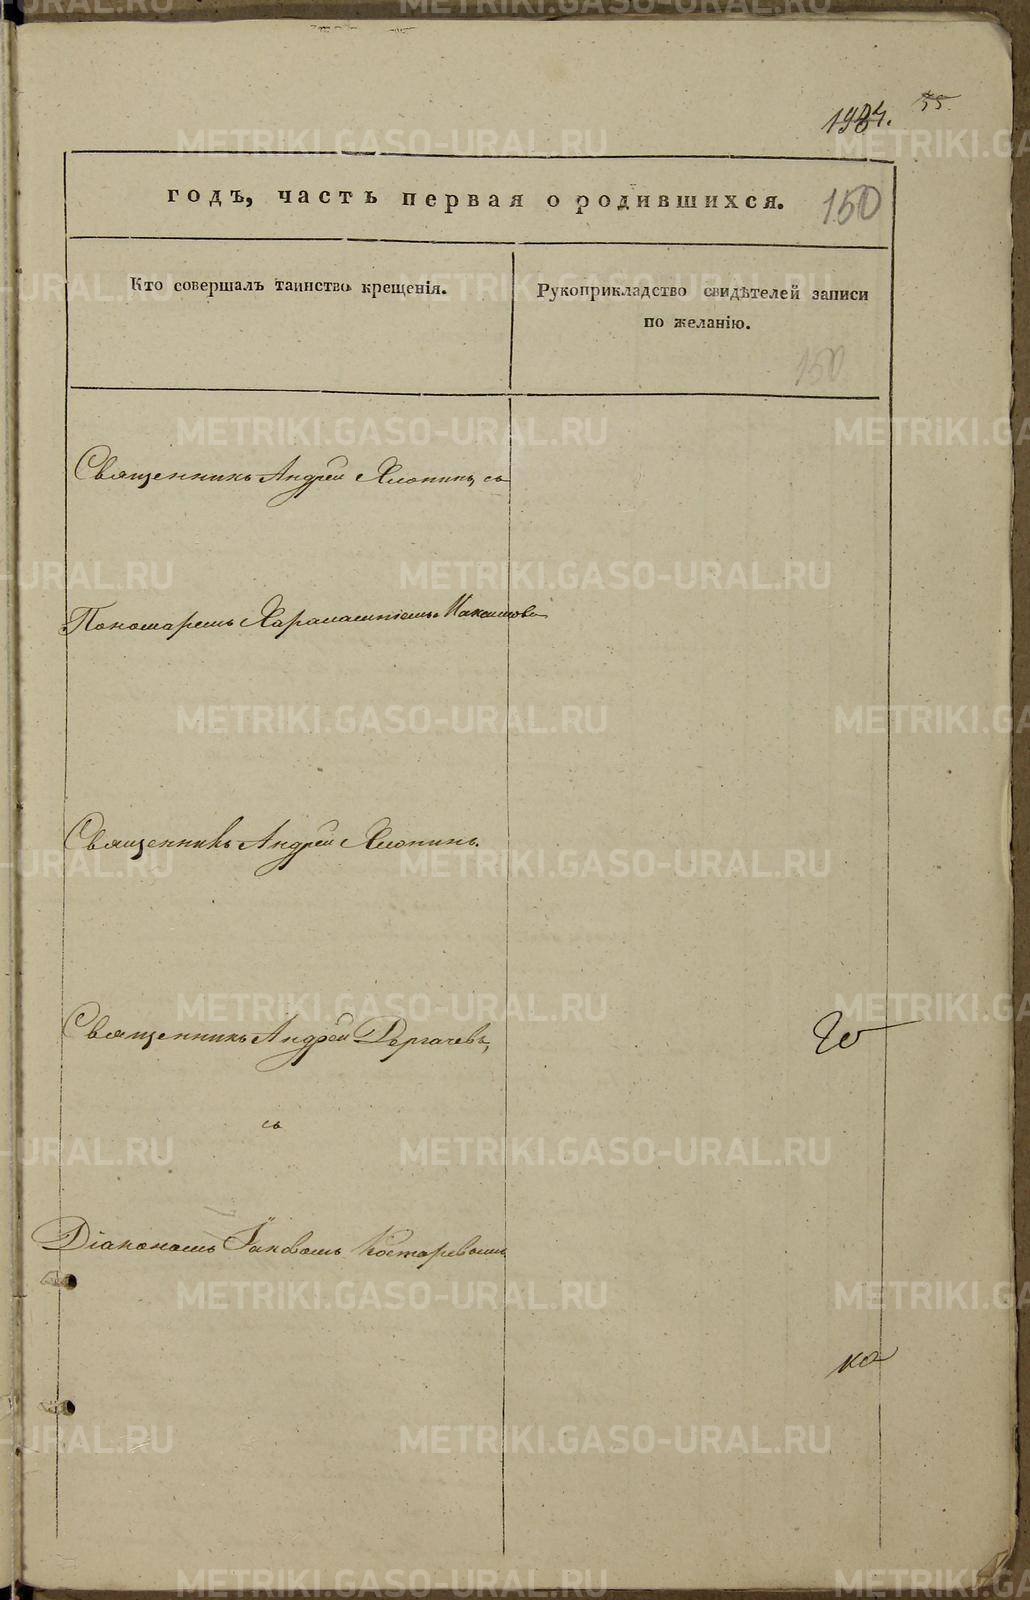 55
годъ, часть первая о родившихся.
150
Кто совершалъ таинство крещенія.
Рукоприкладство свидѣтелей записи
по желанію.
150
Священникъ Андрей Хлопинъ, съ
Пономаремъ Харалампіемъ Максимовы
Священникъ Андрей Хлопинъ.
Священникъ Андрей Дергачевъ,
съ
Діакономъ Іаковомъ Костаревымъ
METRIKI.GASO-URAL.RU